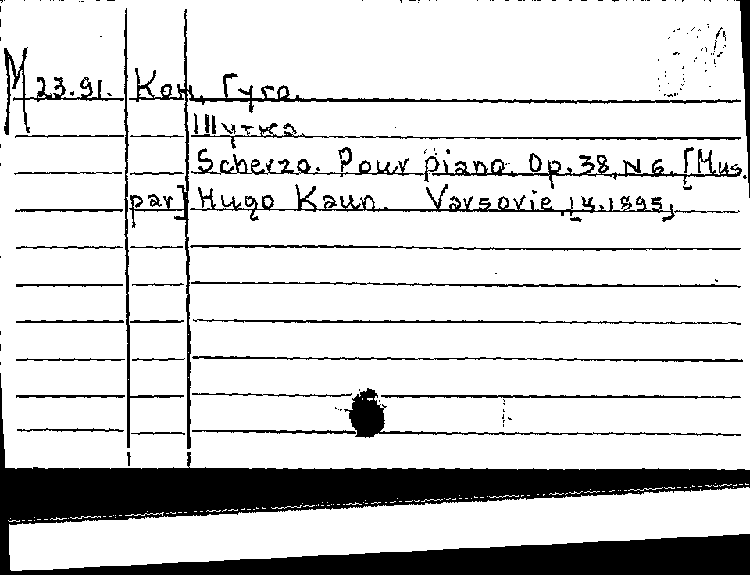 М 23.91. Кон, Гуго.
Шутка.
Scherzo. Pour piano. Op. 38, N 6. [Mus.
par] Hugo Kaun. Varsovie,